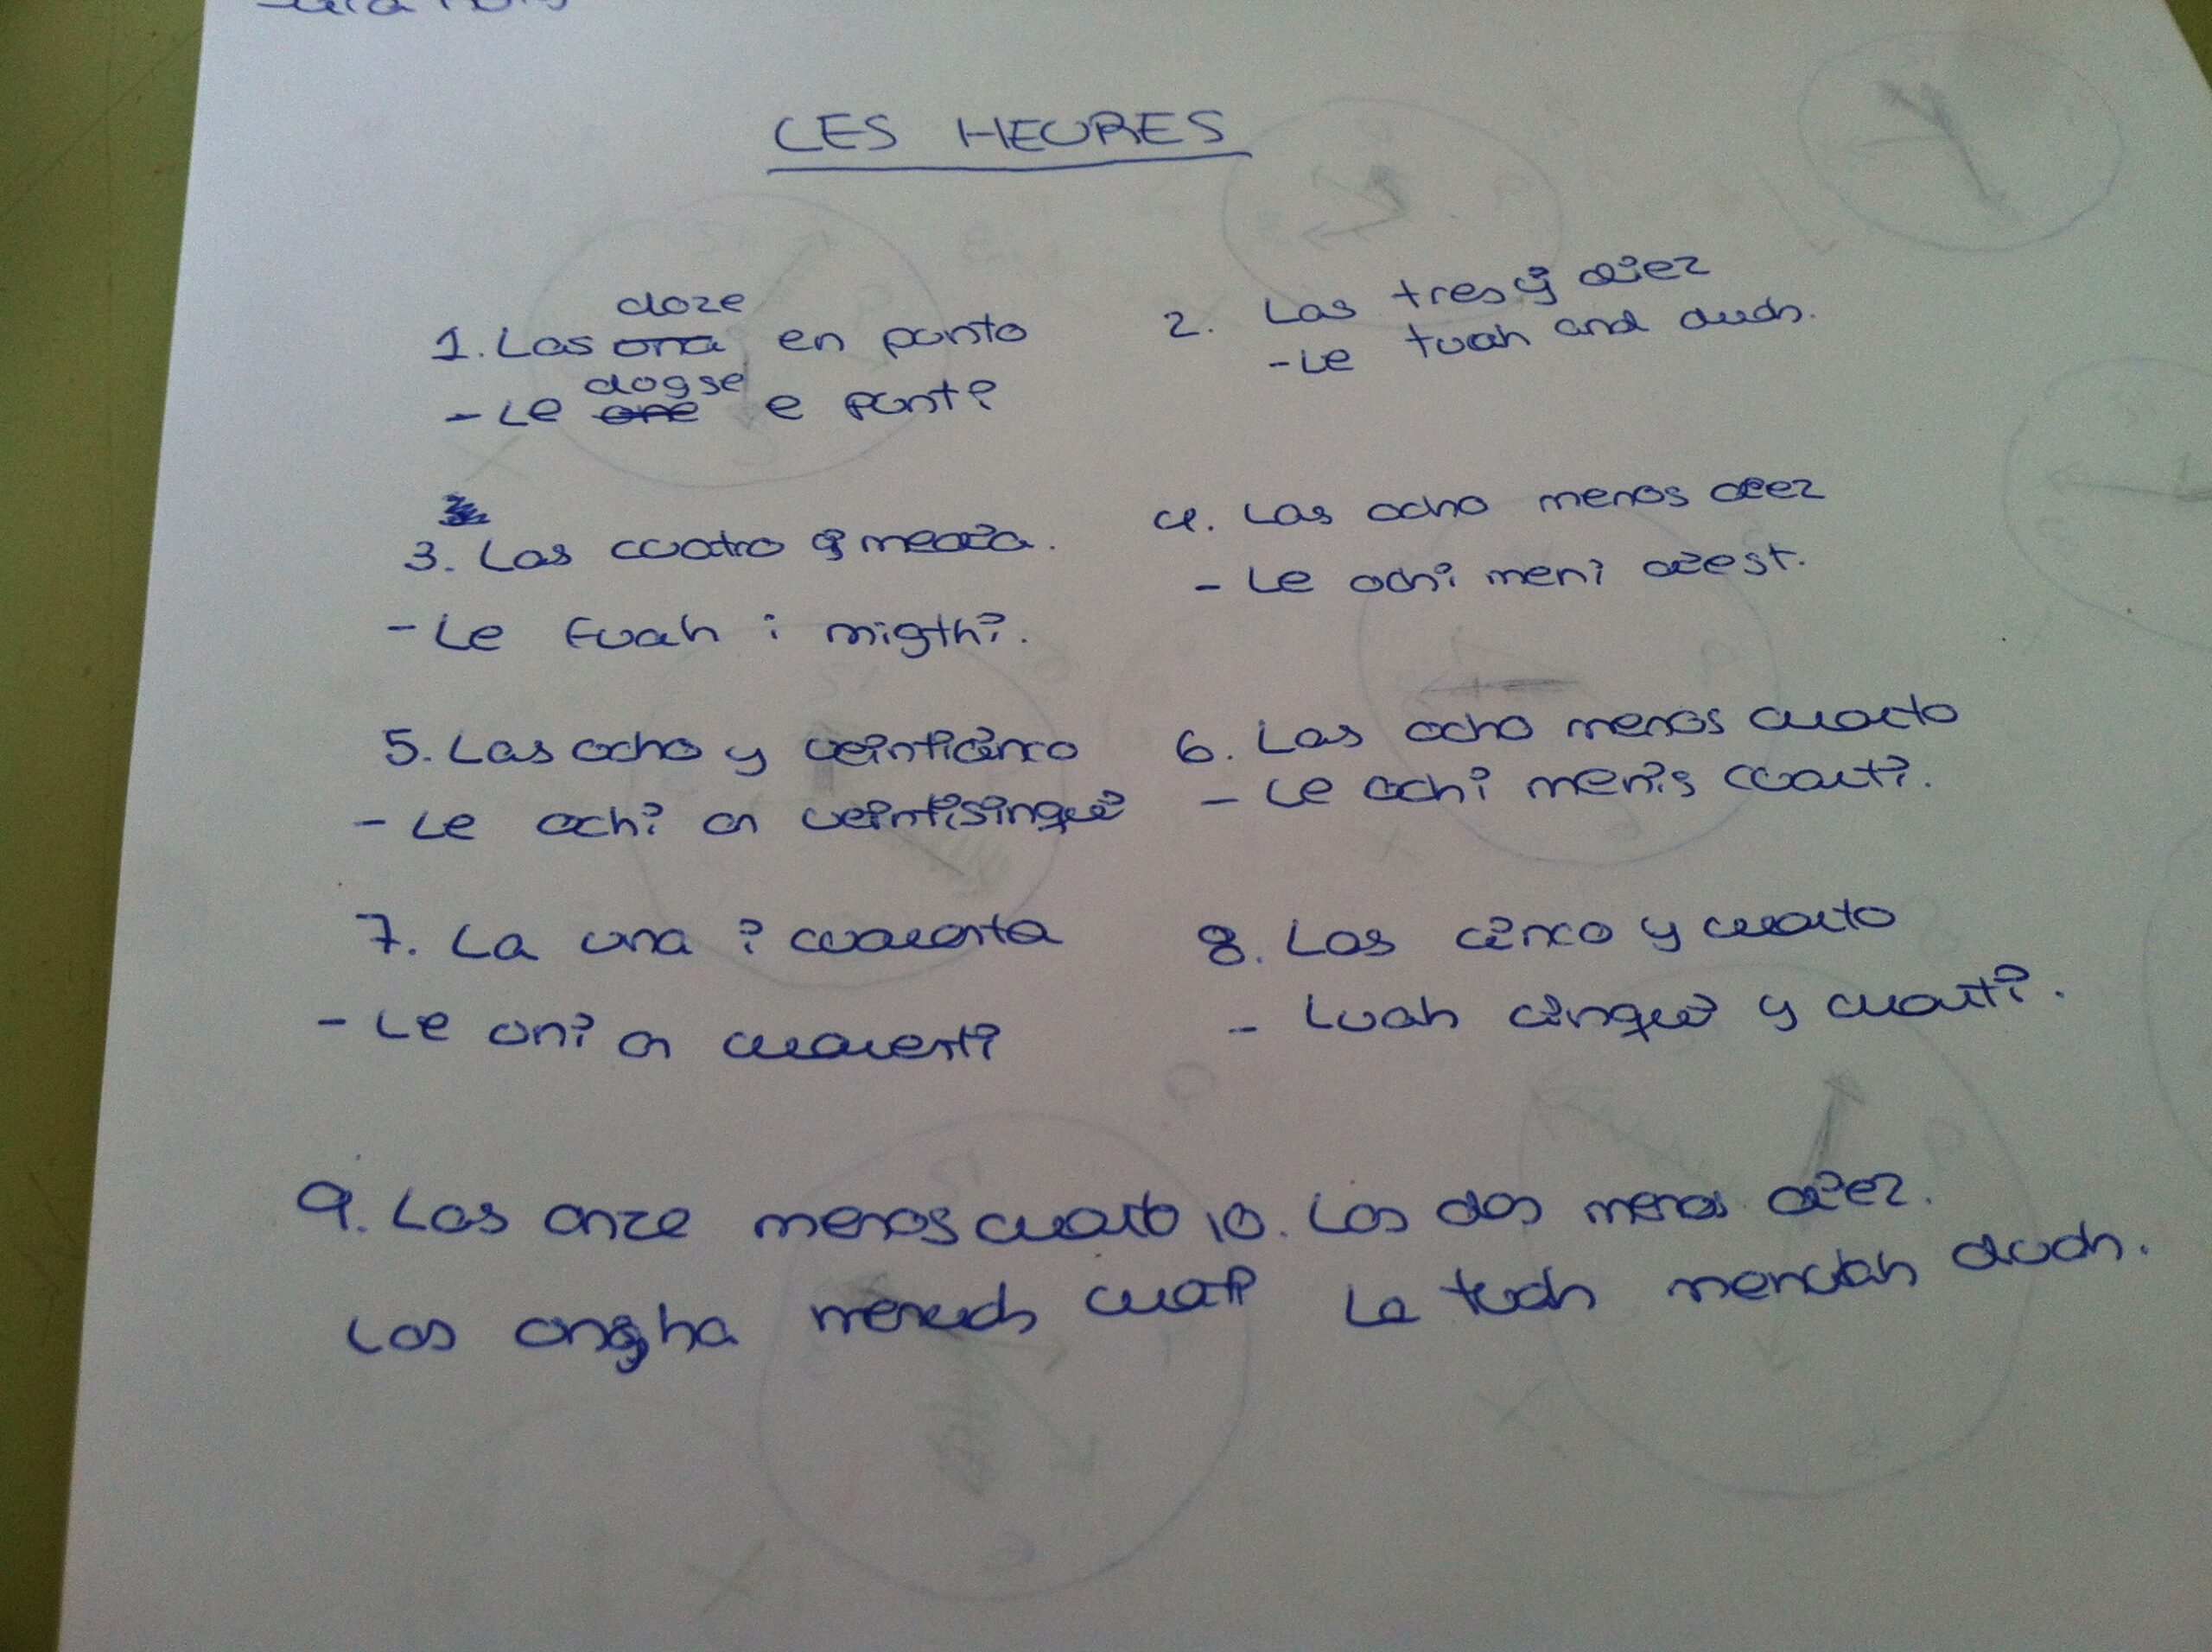 LES HEURES
doze
1. Las ona en punto
dogse
- Le one e punti
2. Las tres y diez
- Le tuah and duch.
3. Las cuatro y media.
- Le fuah i migthi.
4. Las ocho menos diez
- Le ochi meni diest.
5. Las ocho y veinticinco
- Le ochi an veintisinqué
6. Las ocho menos cuarto
- Le ochi menis cuarti.
7. La una i cuarenta
- Le uni an cuarenti
8. Las cinco y cuarto
- Luah cinqué y cuarti.
9. Las onze menos cuarto
Las ongha menuch cuarti
10. Las dos menos diez.
Le tuch menudah duch.